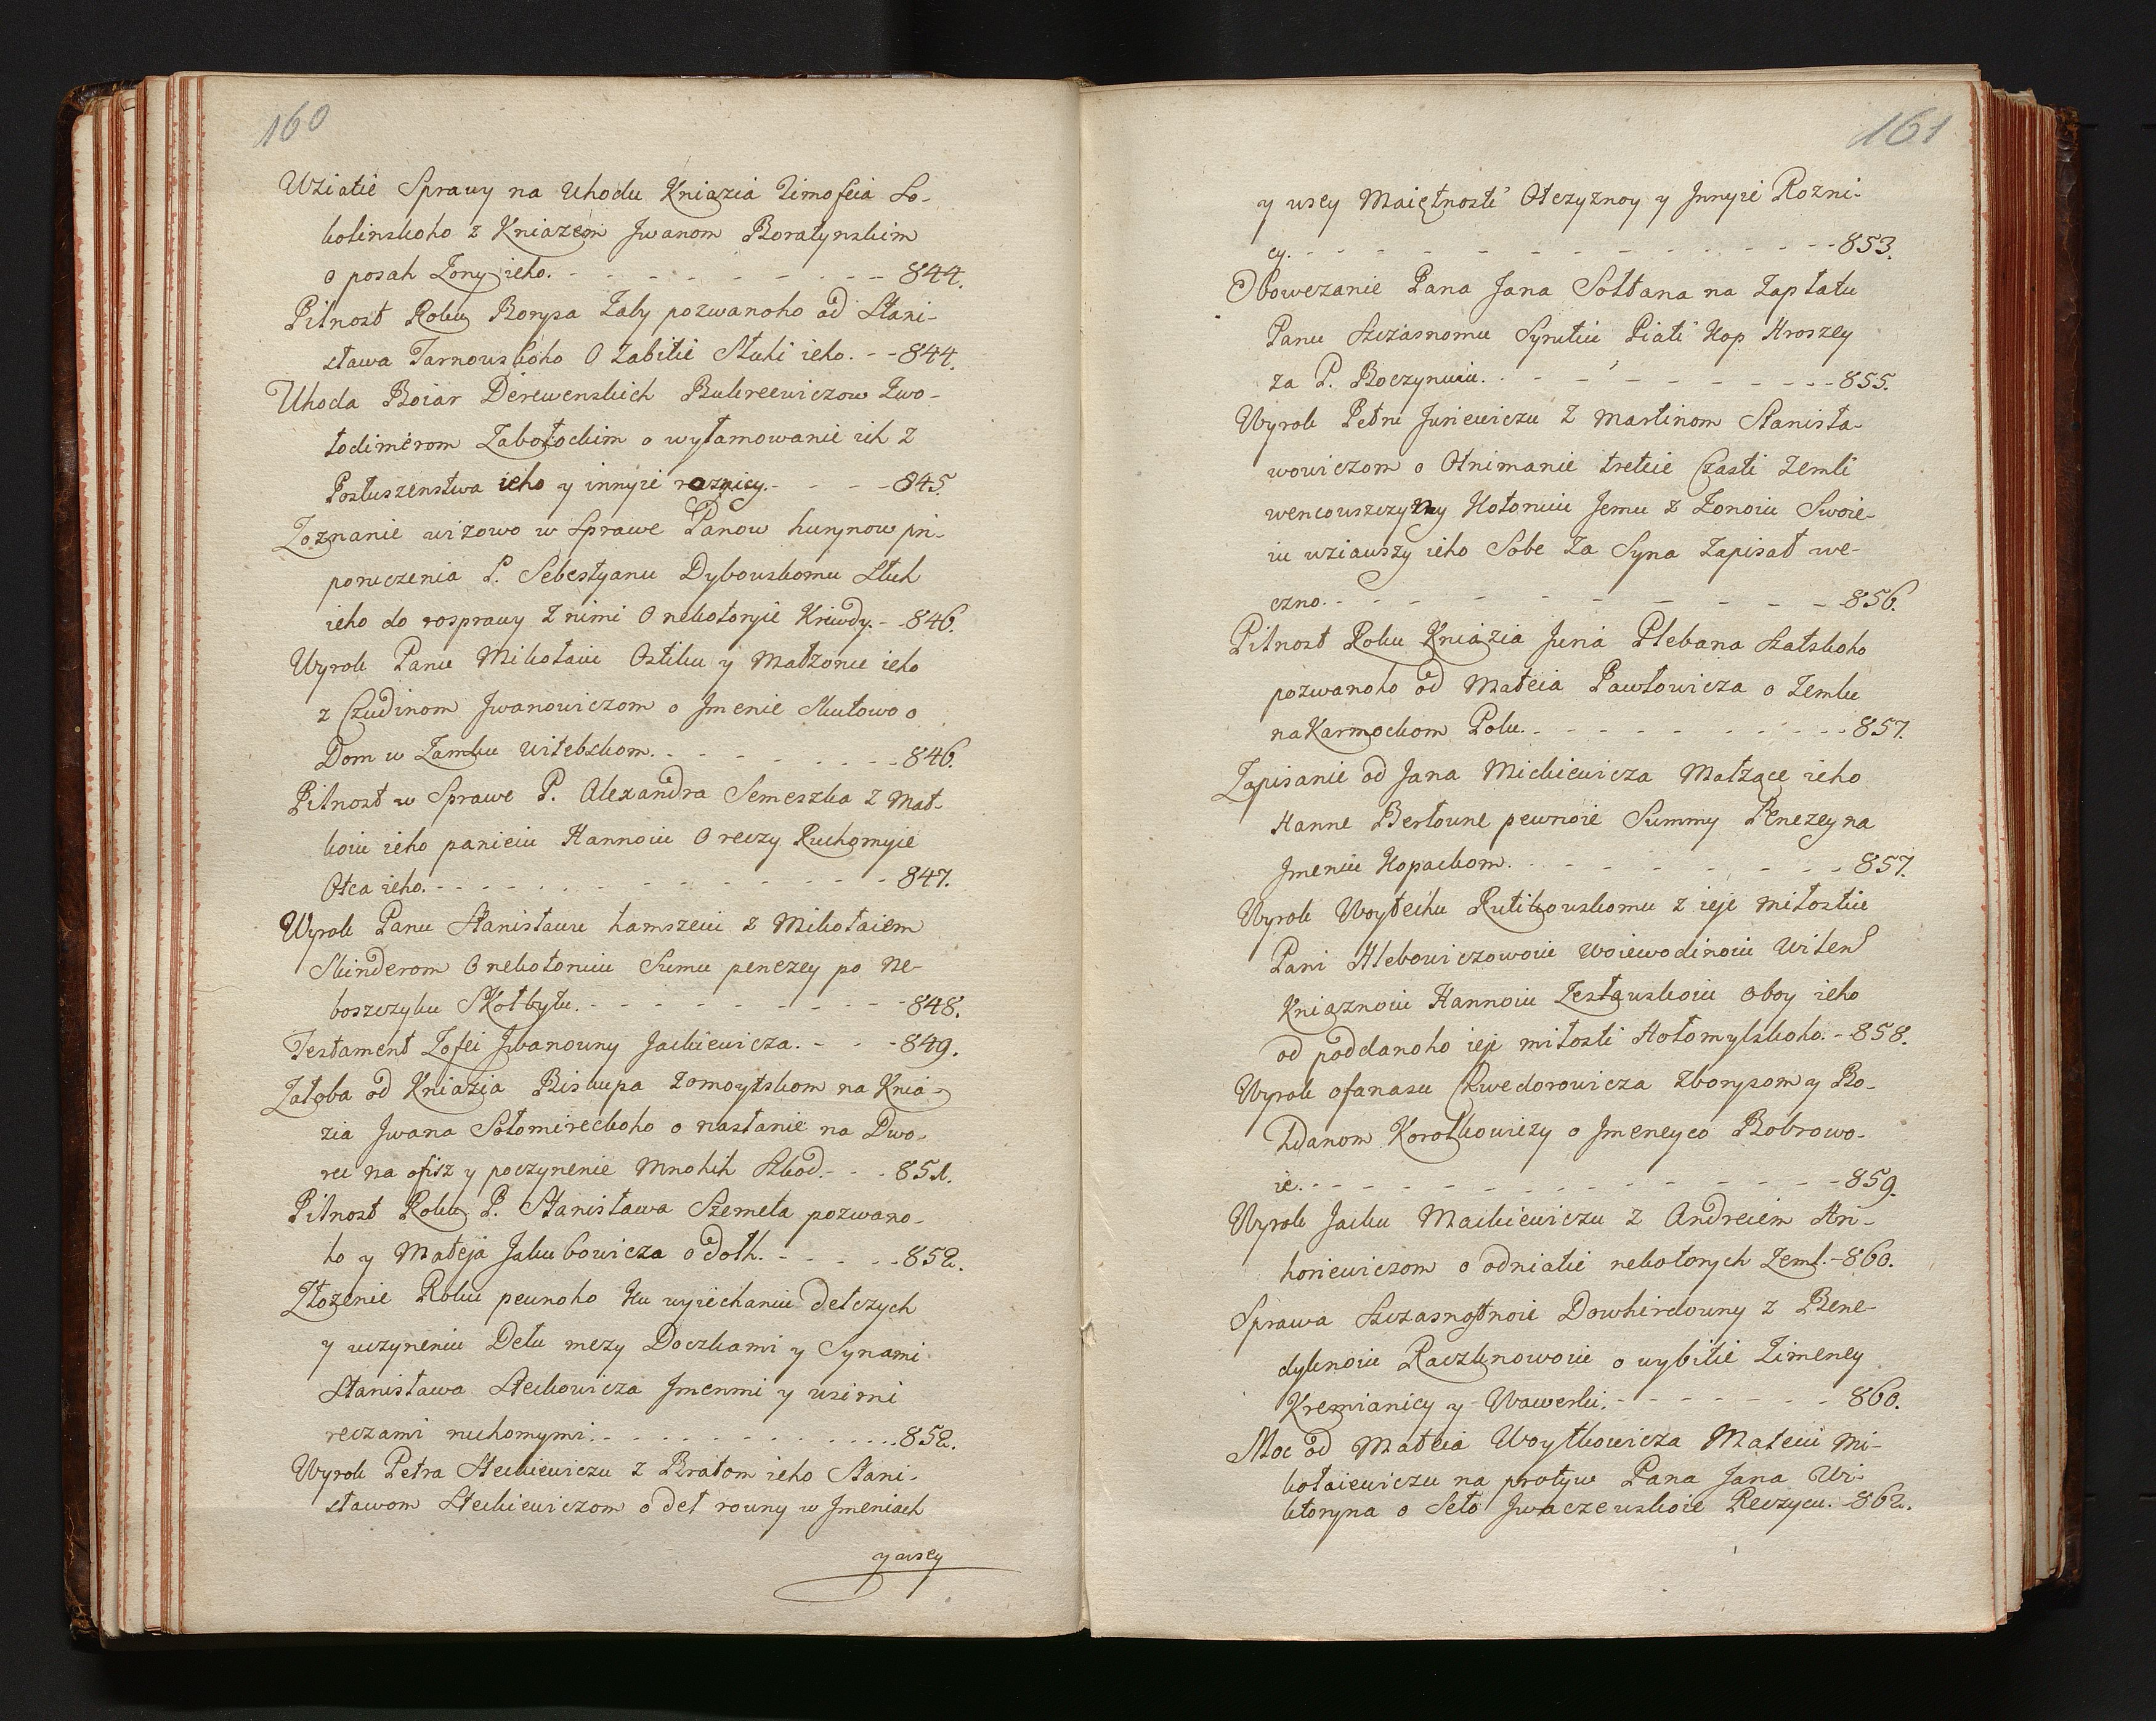 160
Wziatie Sprawy na Uhodu Kniazia Timofeia So-
kolinskoho z Kniazem Jwanom Boratynskim
o posah Żony ieho. - - - - - - - - - - 844.
Pilnost Roku Borysa Żaby pozwanoho od Stani-
sława Tarnowskoho O Zabitie Słuhi ieho. - - 844.
Uhoda Boiar Derewenskich Bukreewiczow Zwo-
łodimerom Zabołockim o wyłamowanie ich z
Posłuszenstwa ieho y innyie roznicy. - - - - 845.
Zoznanie wizowo w Sprawe Panow hurynow pri
poruczenia P. Sebestyanu Dybowskomu Słuh
ieho do rosprawy z nimi O nekotoryie Kriwdy. - - 846.
Wyrok Panu Mikołaiu Ostiku y Małżonce ieho
z Czudinom Jwanowiczom o Jmenie Skutowo o
Dom w Zamku Witebskom. - - - - - - - - 846.
Pilnost w Sprawe P. Alexandra Semeszka z Mat-
koiu ieho panieiu Hannoiu O reczy Ruchomyie
Otca ieho. - - - - - - - - - - - - - 847.
Wyrok Panu Stanisławu hamszeiu z Mikołaiem
Skinderom O nekotoruiu Sumu penezey po Ne-
boszczyku SKołbytu. - - - - - - - - - 848.
Testament Zofei Jwanowny Jackiewicza. - - - 849.
Załoba od Kniazia Biskupa Zomoytskom na Knia-
zia Jwana Sołomireckoho o nasłanie na Dwo-
rec na ofisz y poczynenie Mnohih Szkod. - - - 851.
Pilnost Roku P. Stanisława Szemeta pozwano-
ho y Mateja Jakubowicza o dołh. - - - - - 852.
Złożenie Roku pewnoho Ku wyiechaniu detczych
y uczyneniu Dełu mezy Doczkami y Synami
Stanisława Steckowicza Jmenmi y wsimi
reczami ruchomymi. - - - - - - - - - - - 852.
Wyrok Petra Steckiewiczu z Bratom ieho Stani-
sławom Steckiewiczom o deł rowny w Jmeniach
y wsey
161
y wsey Maiętnosti Otczyznoy y Jnnyie Rozni-
cy. - - - - - - - - - - - - - - 853.
Obowezanie Pana Jana Sołtana na Zapłatu
Panu Szczasnomu Syrutiu Piati Kop Hroszey
za P. Boczynuiu. - - - - - - - - - - 855.
Wyrok Petru Juriewiczu z Martinom Stanisła-
wowiczom o Otnimanie treteie Czasti Zemli
wencowszczyzny Kotoruiu Jemu z Zonoiu Swoie-
iu wziawszy ieho Sobe Za Syna Zapisał we-
czno. - - - - - - - - - - - - 856.
Pilnost Roku Kniazia Juria Plebana Szatskoho
pozwanoho od Mateia Pawłowicza o Zemlu
na Karmockom Polu. - - - - - - - - - - 857.
Zapisanie od Jana Mickiewicza Małzące ieho
Hanne Bertowne pewnoie Summy Penezey na
Jmeniu Kopackom. - - - - - - - - 857.
Wyrok Woytechu Rutikowskomu z ieje miłostiu
Pani Hlebowiczowoiu Woiewodinoiu Wilen
Kniaznoiu Hannoiu Zesławskoiu oboy ieho
od poddanoho ieje miłosti Hołomylskoho. - 858.
Wyrok ofanasu Chwedorowicza Zborysom y Bo-
hdanom Korotkowiczy o Jmeneyco Bobrowo-
ie. - - - - - - - - - - - - - - 859.
Wyrok Jacku Mackiewiczu z Andreiem Hri-
horiewiczom o odniatie nekotorych Zeml. - 860.
Sprawa Szczasnotnoie Dowhirdowny z Bene-
dyktnoiu Raczknowoiu o wybitie Zimeney
Kremianicy y Wawerki. - - - - - - 860.
Moc od Mateia Woytkowicza Mateiu Mi-
kołaiewiczu na protyw Pana Jana Wi-
ktoryna o Seło Jwaczewskoie Reczycu. - 862.